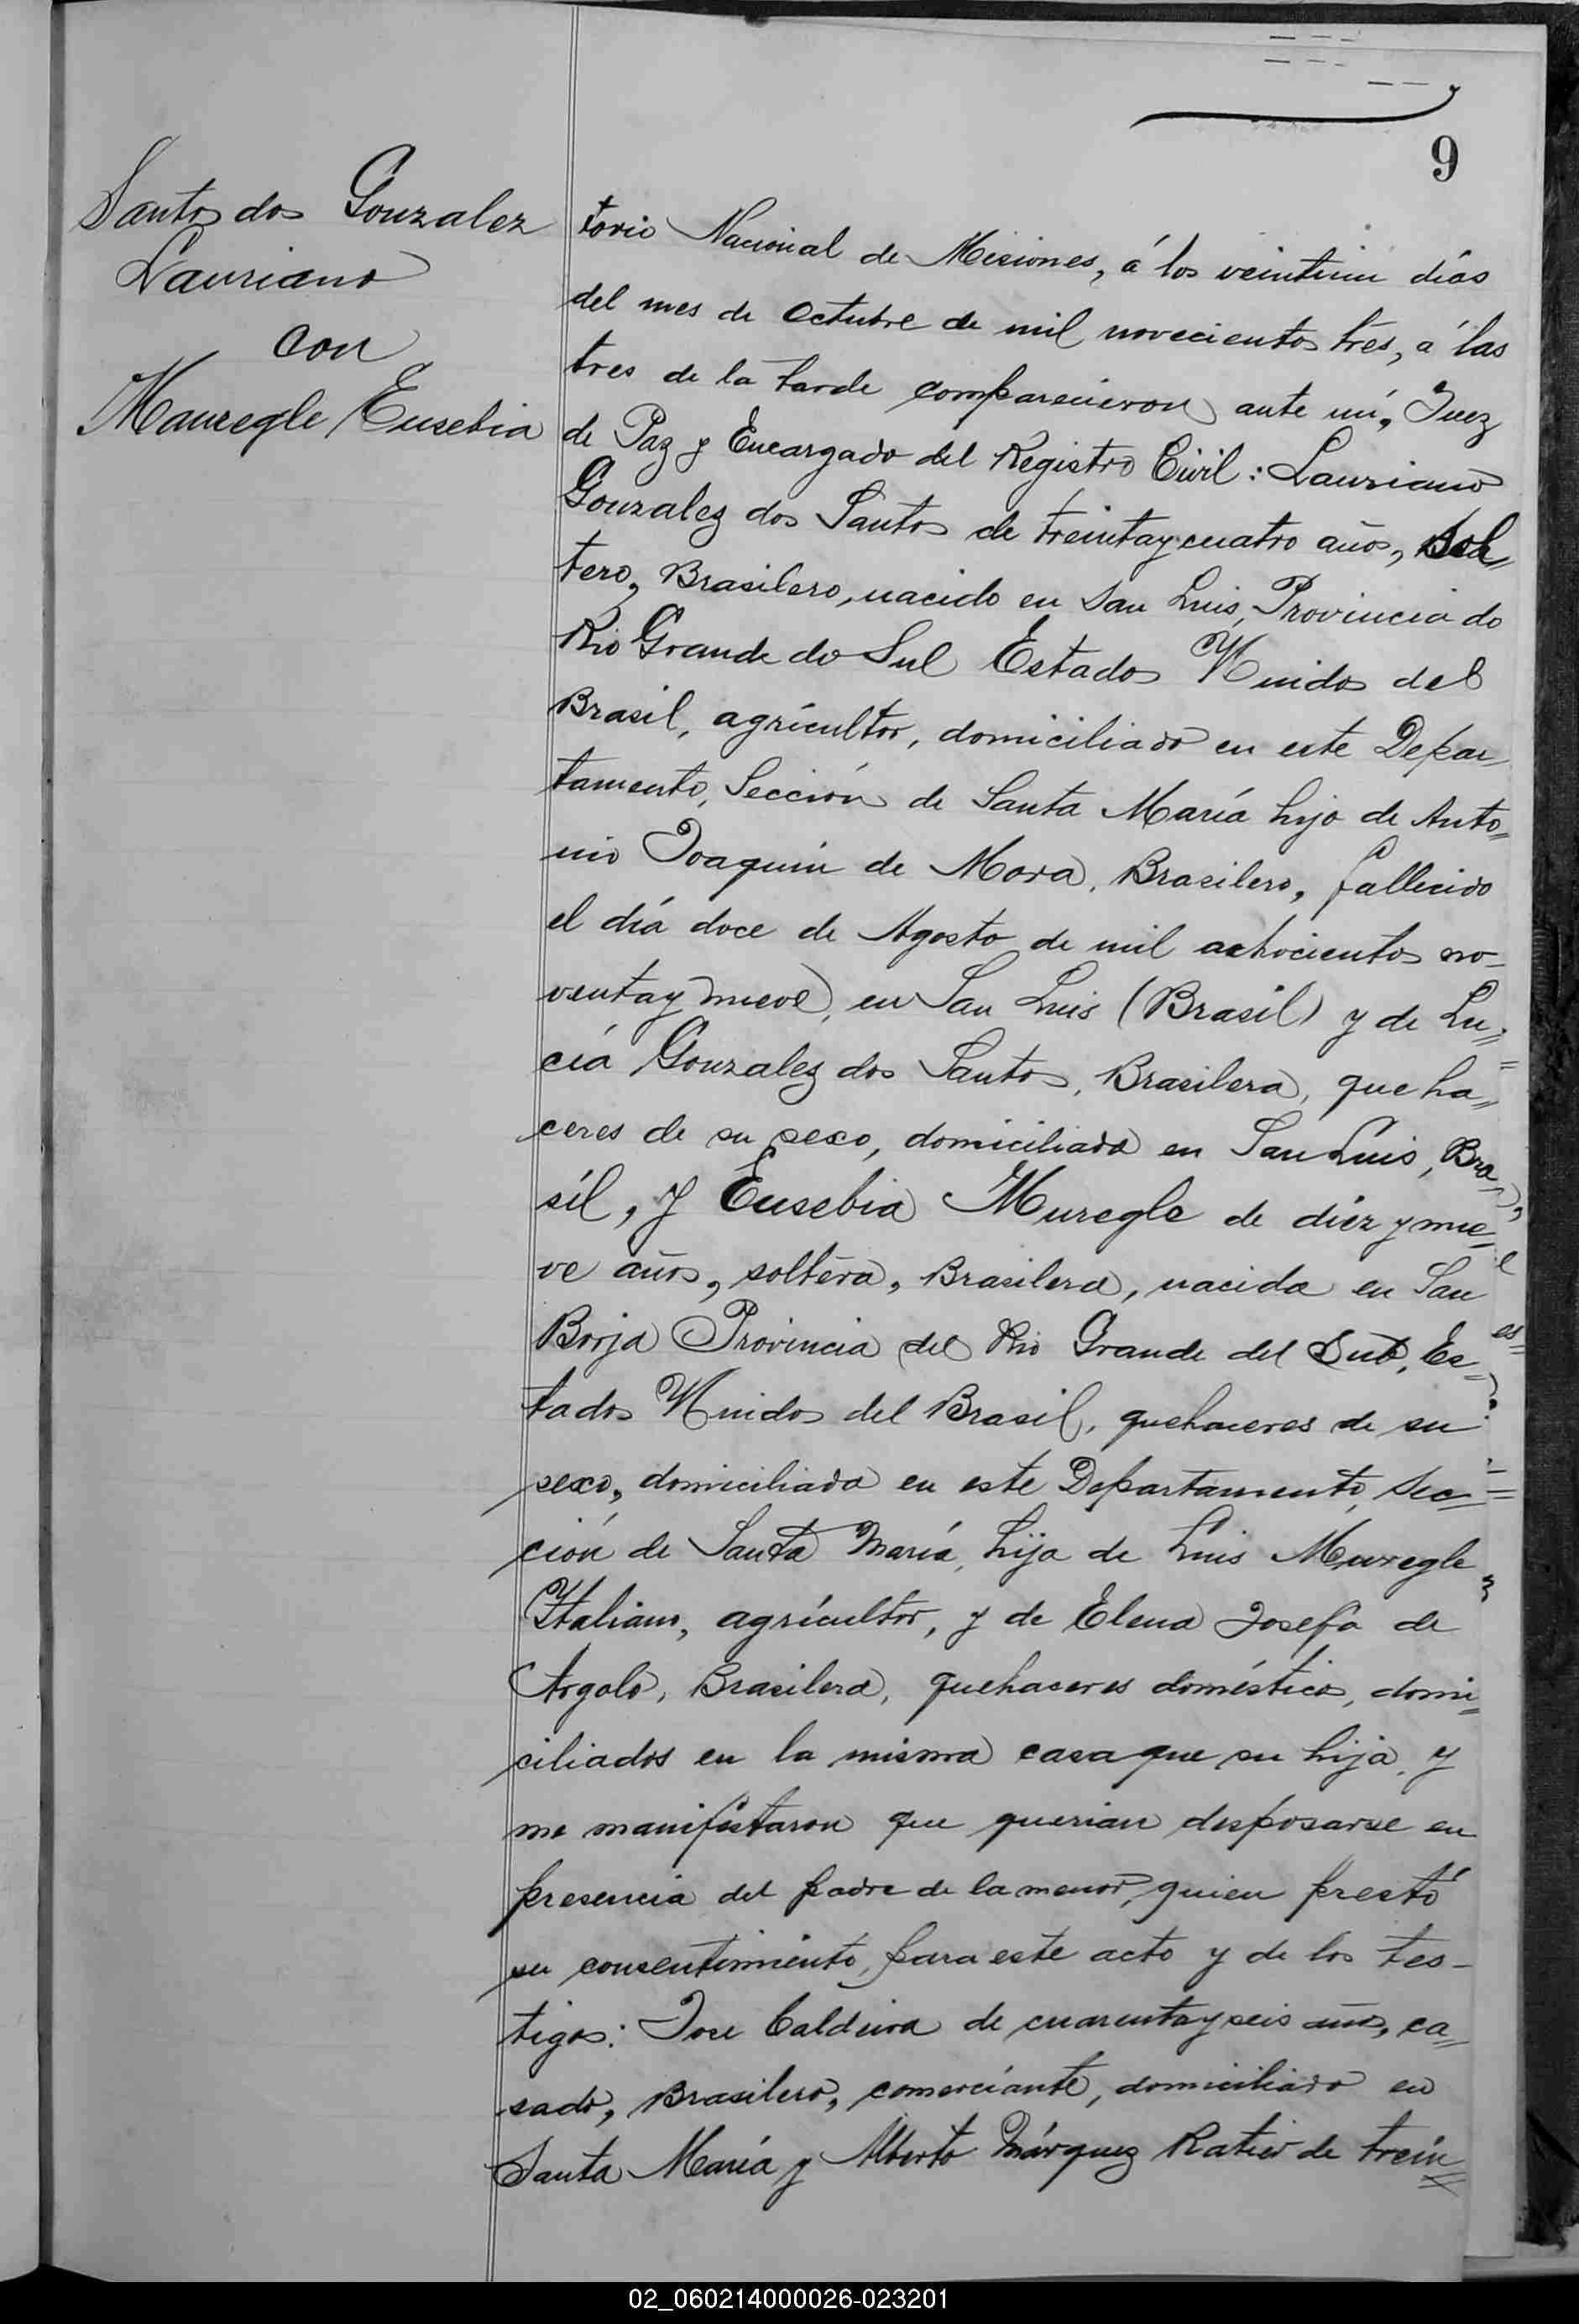 9
Santos dos Gonzalez
Lauriano
con
Mauregle Eusebia
torio Nacional de Misiones, á los veintiun días
del mes de Octubre de mil novecientos tres, á las
tres de la tarde comparecieron ante mí, Juez
de Paz y Encargado del Registro Civil: Lauriano
Gonzalez dos Santos de treinta y cuatro años, sol=
tero, Brasilero, nacido en San Luis, Provincia do
Rio Grande do Sul Estados Unidos del
Brasil, agricultor, domiciliado en este Depar=
tamento, Sección de Santa María hijo de Anto=
nio Joaquin de Mora, Brasilero, fallecido
el día doce de Agosto de mil ochocientos no-
venta y nueve, en San Luis (Brasil) y de Lu=
cía Gonzalez dos Santos, Brasilera, queha=
ceres de su sexo, domiciliada en San Luis, Bra=
sil, y Eusebia Muregle de diez y nue=
ve años, soltera, Brasilera, nacida en San
Borja Provincia del Rio Grande del Sud, Es=
tados Unidos del Brasil, quehaceres de su
sexo, domiciliada en este Departamento, Sec=
ción de Santa María, hija de Luis Muregle
Italiano, agricultor, y de Elena Josefa de
Argolo, Brasilera, quehaceres domésticos, domi=
ciliados en la misma casa que su hija, y
me manifestaron que querian desposarse en
presencia del padre de la menor, quien prestó
su consentimiento, para este acto y de los tes-
tigos: Jose Caldeira de cuarenta y seis años, ca=
sado, Brasilero, comerciante, domiciliado en
Santa María y Alberto Márquez Ratier de trein=
02_060214000026-023201